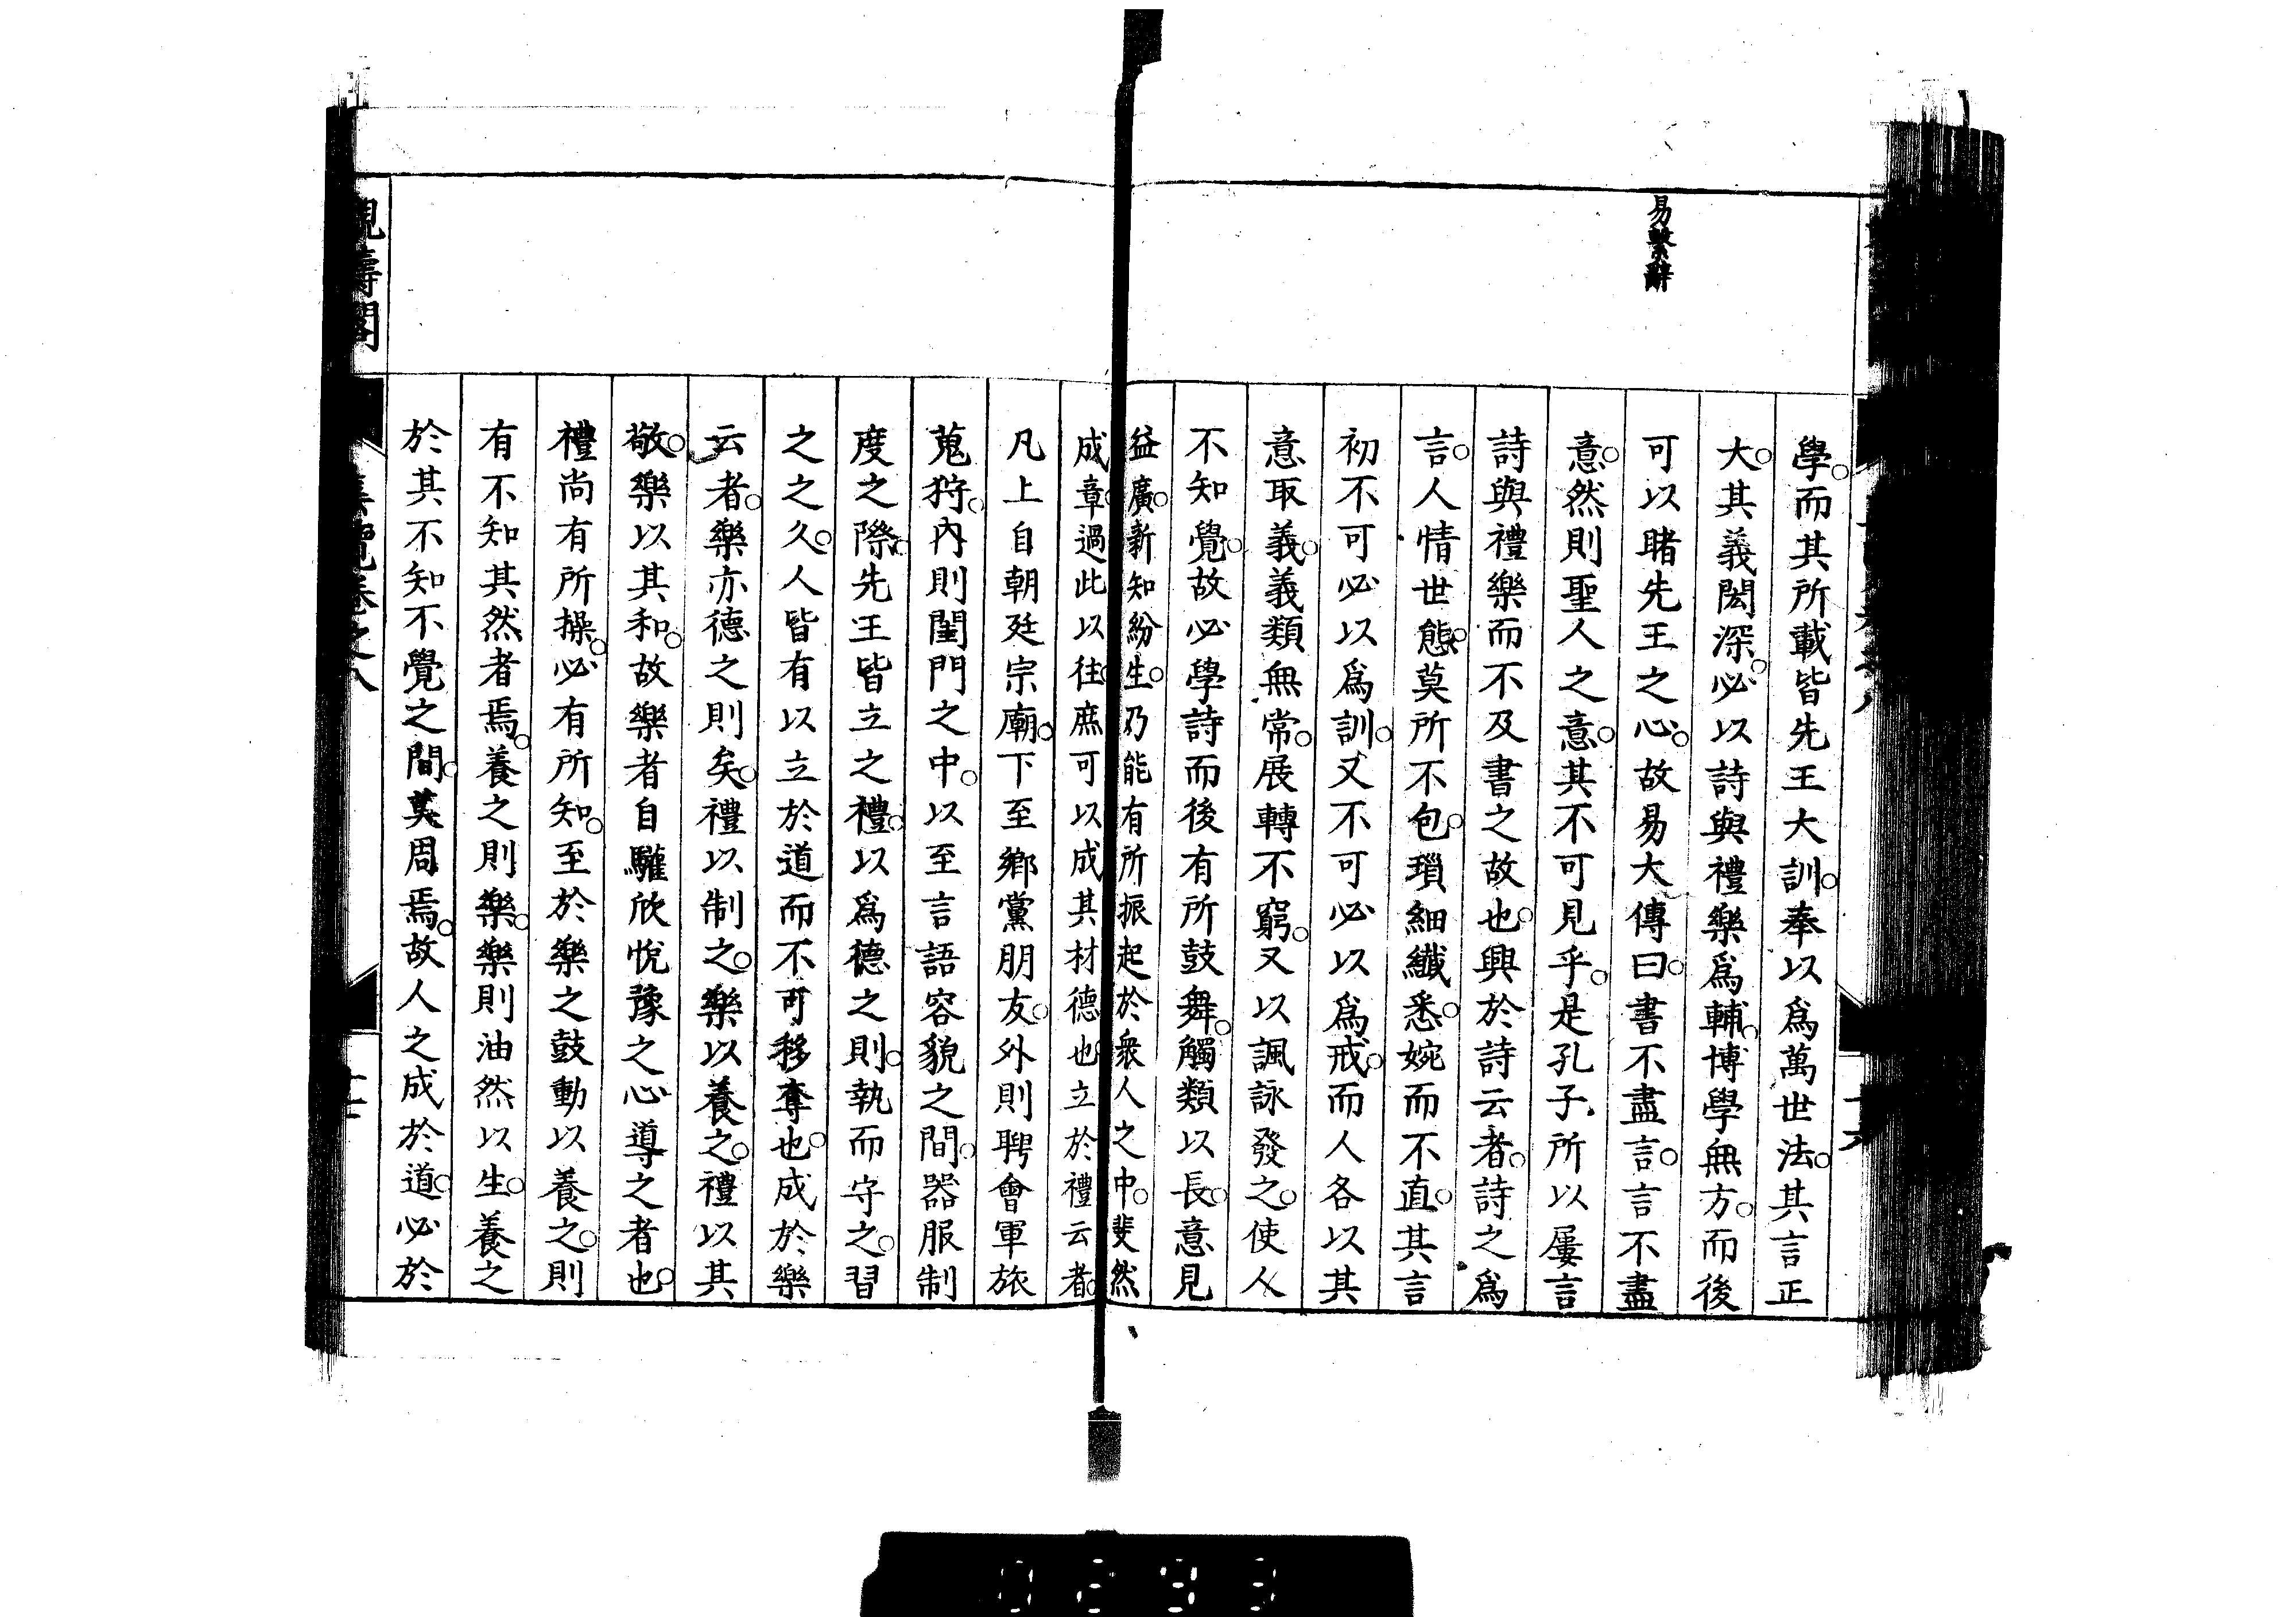 易繫辭
學。而其所載皆先王大訓。奉以爲萬世法。其言正
大。其義閎深。必以詩與禮樂爲輔。博學無方。而後
可以睹先王之心。故易大傳曰。書不盡言。言不盡
意。然則聖人之意。其不可見乎。是孔子所以屢言
詩與禮樂而不及書之故也。興於詩云者。詩之爲
言。人情世態。莫所不包。瑣細纖悉。婉而不直。其言
初不可必以爲訓。又不可必以爲戒。而人各以其
意取義。義類無常。展轉不窮。又以諷詠發之。使人
不知覺。故必學詩而後有所鼓舞。觸類以長。意見
益廣。新知紛生。乃能有所振起於衆人之中。斐然
成章。過此以往。庶可以成其材德也。立於禮云者。
凡上自朝廷宗廟。下至鄉黨朋友。外則聘會軍旅
蒐狩。內則閨門之中。以至言語容貌之間。器服制
度之際。先王皆立之禮。以爲德之則。執而守之。習
之之久。人皆有以立於道而不可移奪也。成於樂
云者。樂亦德之則矣。禮以制之。樂以養之。禮以其
敬。樂以其和。故樂者自驩欣悅豫之心導之者也。
禮尚有所操。必有所知。至於樂之鼓動以養之。則
有不知其然者焉。養之則樂。樂則油然以生。養之
於其不知不覺之間。莫周焉。故人之成於道。必於
觀濤閣
集覽卷之八